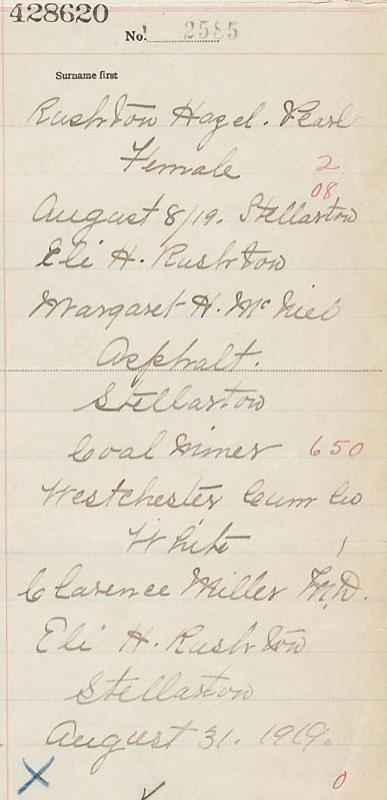 428620
No. 2585
Surname first
Rushton Hazel. Pearl
Female 2
08
August 8/19. Stellarton
Eli H. Rushton
Margaret H. McNiel
Asphalt.
Stellarton
Coal Miner 650
Westchester Cum Co
White 1
Clarence Miller M.D.
Eli H. Rushton
Stellarton
August 31. 1919.
X
0